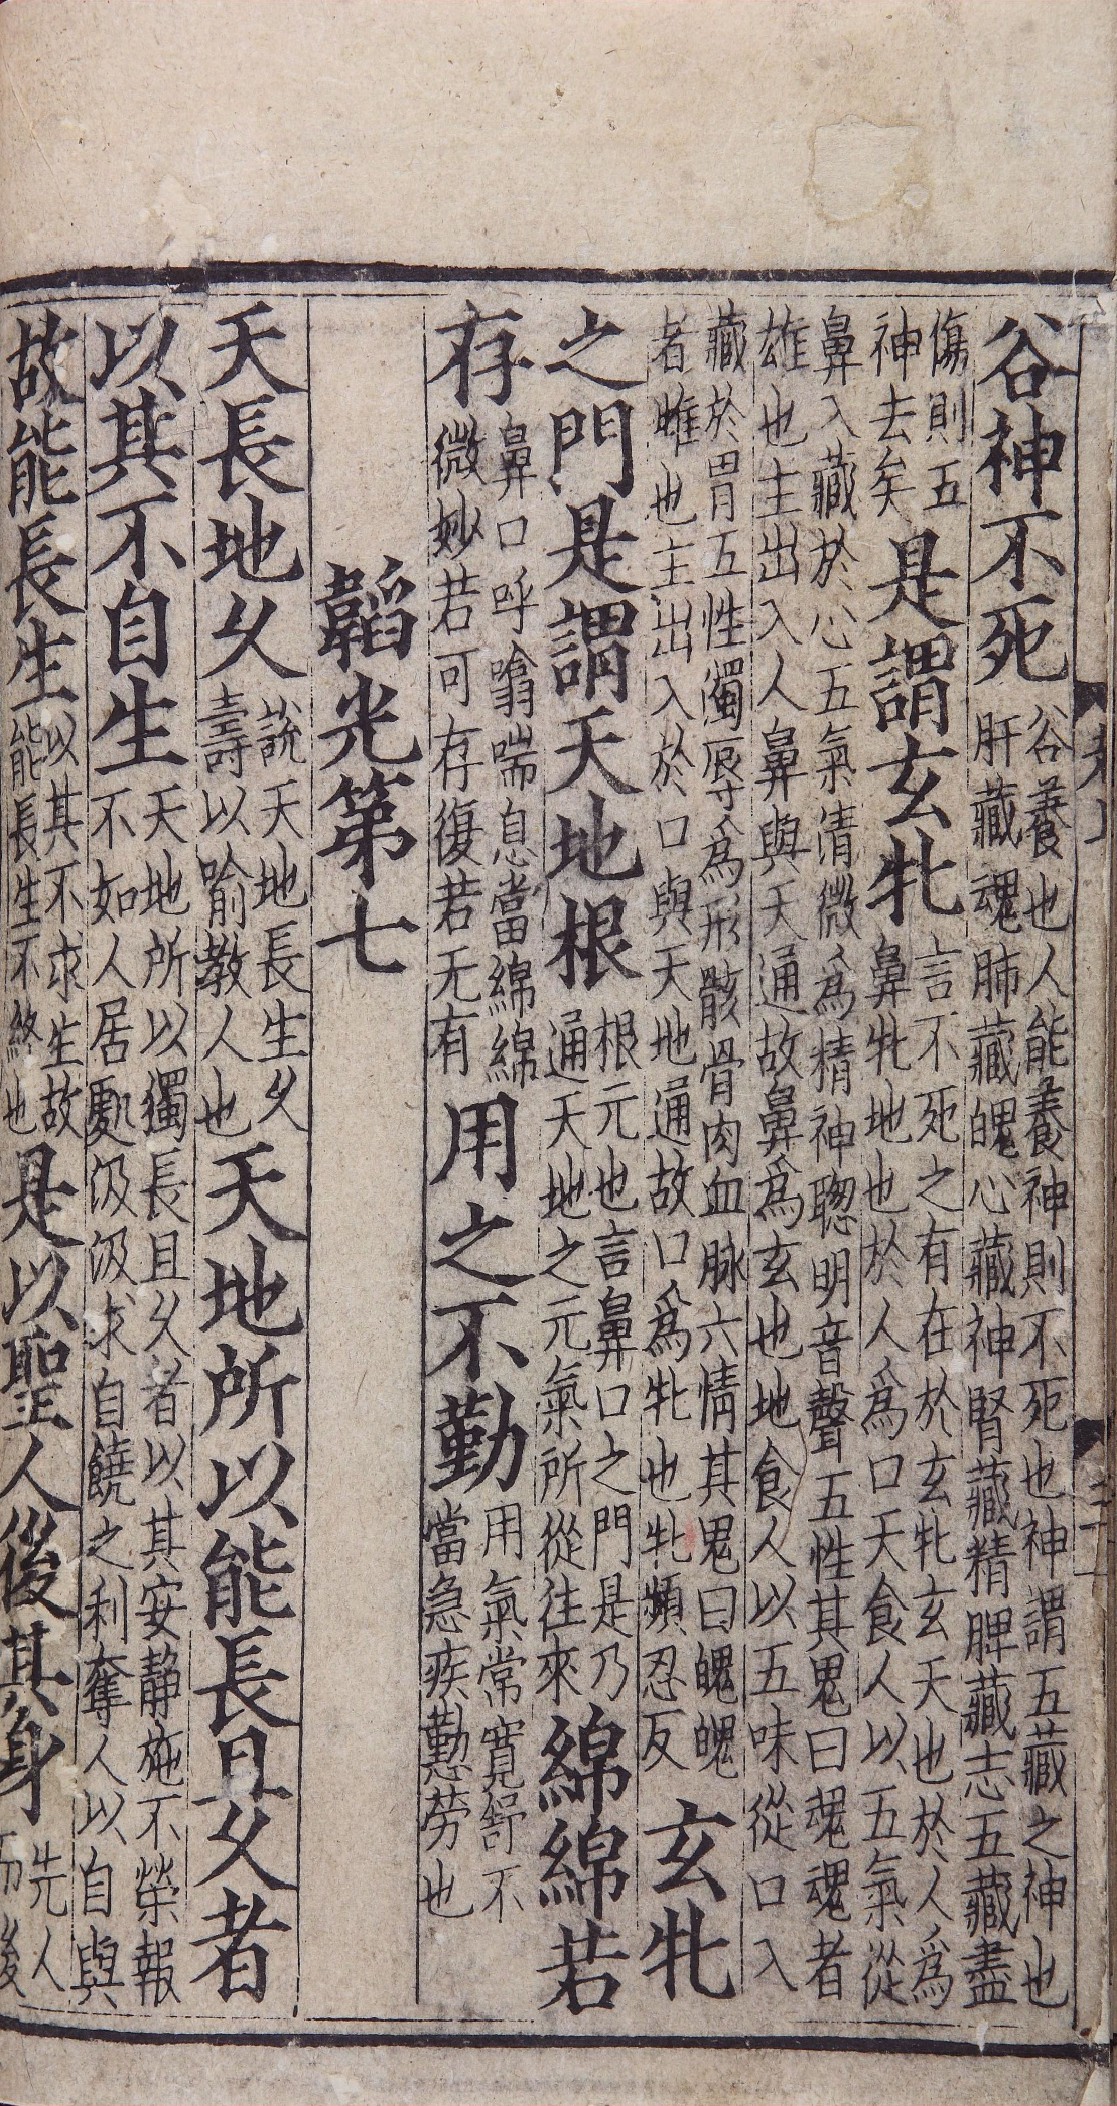 谷神不死谷養也人能養神則不死也神謂五藏之神也肝藏魂肺藏魄心藏神腎藏精脾藏志五藏盡
傷則五神去矣是謂玄牝言不死之有在於玄牝玄天也於人爲鼻牝地也於人爲口天食人以五氣從
鼻入藏於心五氣清微爲精神聦明音聲五性其鬼曰魂魂者雄也主出入人鼻與天通故鼻爲玄也地食人以五味從口入
藏於胃五性濁辱爲形骸骨肉血脉六情其鬼曰魄魄者雌也主出入於口與天地通故口爲牝也牝頻忍反玄牝
之門是謂天地根根元也言鼻口之門是乃通天地之元氣所從往來綿綿若
存鼻口呼噏喘息當綿綿微妙若可存復若无有用之不勤用氣常寬舒不當急疾懃勞也
韜光第七
天長地乆說天地長生乆壽以喻教人也天地所以能長且乆者
以其不自生天地所以獨長且乆者以其安静施不榮報不如人居處汲汲求自饒之利奪人以自與
故能長生以其不求生故能長生不終也是以聖人後其身先人而後